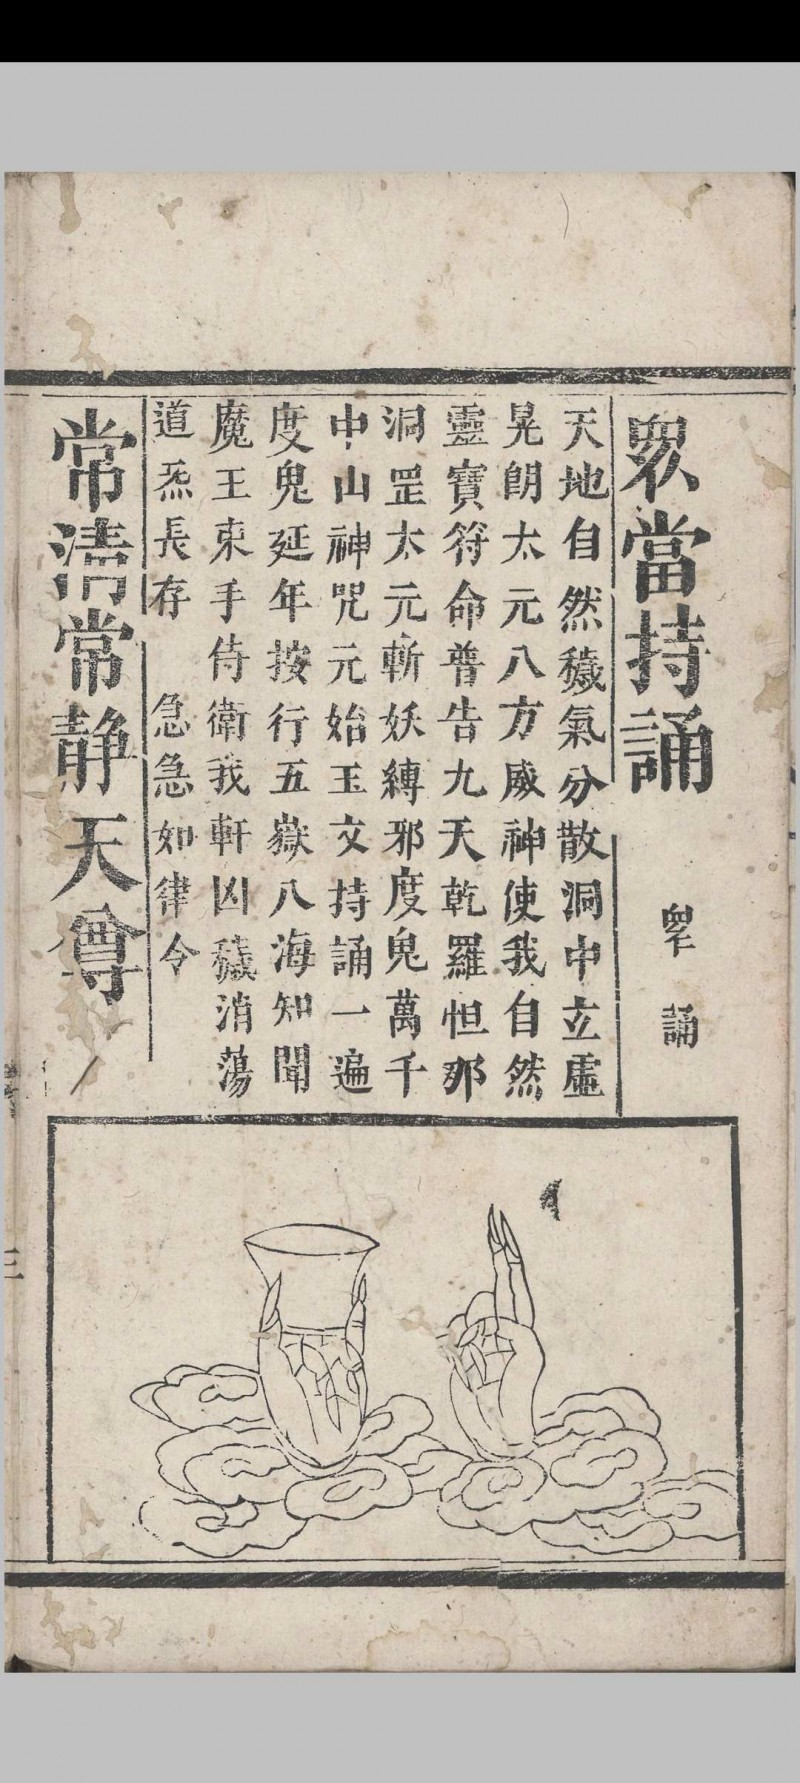 眾當持誦　眾誦
天地自然穢氣分散洞中立虛
晃朗太元八方威神使我自然
靈寶符命普告九天乾羅怛那
洞罡太元斬妖縛邪度鬼萬千
中山神咒元始玉文持誦一遍
度鬼延年按行五嶽八海知聞
魔王束手侍衛我軒凶穢消蕩
道炁長存　急急如律令
常清常静天尊
三